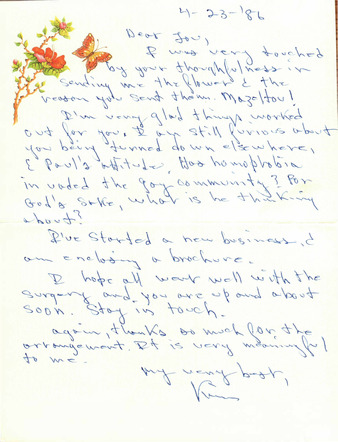 4-23-'86
Dear Lou,
I was very touched
by your thoughtfulness in
sending me the flowers & the
reason you sent them. Mazeltov!
I'm very glad things worked
out for you. I am still furious about
you being turned down elsewhere,
& Paul's attitude. Has homophobia
invaded the gay community? For
God's sake, what is he thinking
about?
I've started a new business, &
am enclosing a brochure.
I hope all went well with the
surgery and you are up and about
soon. Stay in touch.
again, thanks so much for the
arrangement. It is very meaningful
to me.
My very best,